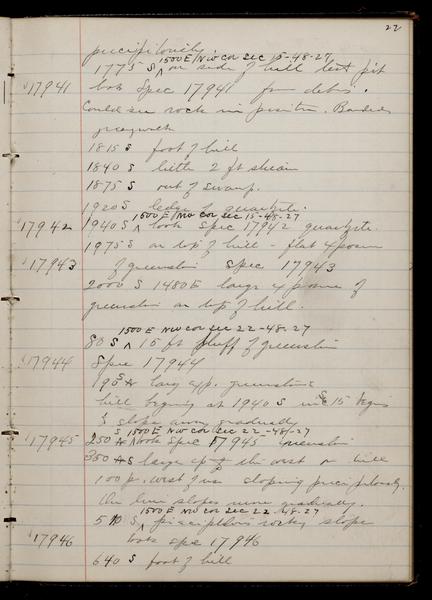 22
precipitously.
1500 E/NW COR SEC 15-48-27
1775 S on side of hill test pit
17941 took Spec 17941 from debris.
Could see rock in position. Banded
graywack
1815 S foot of hill
1840 S little 2 ft stream
1875 S out of swamp.
1920 S ledge of quartzite.
1500 E/NW COR SEC 15-48-27
17942 1940 S took Spec 17942 quartzite.
1975 S on top of hill - flat exposure
17943 of greenstone Spec 17943
2000 S 1480 E large exposure of
greenstone on top of hill.
1500 E NW COR SEC 22-48-27
80 S 15 ft bluff of greenstone
17944 Spec 17944
190 S large exp. greenstone
hill begins at 1940 S in S 15 begins
to slope more gradually
S 1500 E NW COR SEC 22-48-27
17945 250 took Spec 17945 greenstone
350 S large exp to the west on hill
100 p. west of us sloping precipitously.
Our line slopes more gradually.
1500 E NW COR SEC 22-48-27
510 S precipitous rocky slope
17946 took spec 17946
640 S foot of hill